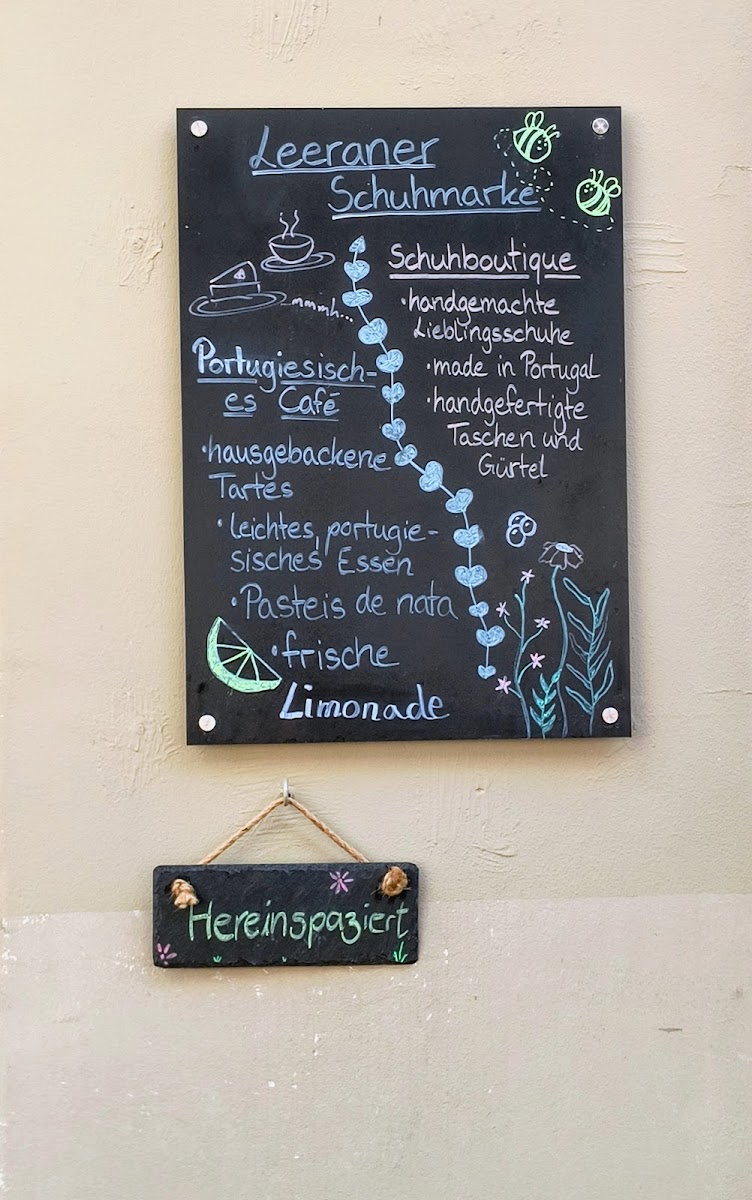 Leeraner
Schuhmarke
mmmh...
Portugiesisch-
es Café
•hausgebackene
Tartes
•leichtes, portugie-
sisches Essen
•Pasteis de nata
•frische
Limonade
Schuhboutique
•handgemachte
Lieblingsschuhe
•made in Portugal
•handgefertigte
Taschen und
Gürtel
Hereinspaziert